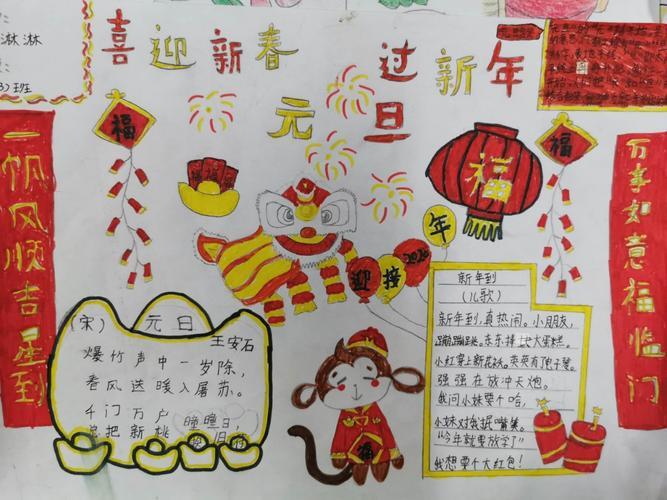 淋淋
3)班
喜迎新春
过新年
元旦
一帆风顺吉星到
万事如意福临门
福
福
福
迎接
年
福
(宋) 元日
王安石
爆竹声中一岁除,
春风送暖入屠苏。
千门万户瞳瞳日,
总把新桃
新年到
(儿歌)
新年到,真热闹。小朋友,
蹦蹦跳跳。东东捧大蛋糕。
小红穿上新花袄。英英有了电子琴。
强强在放冲天炮。
我问小妹要个啥,
小妹对我抿嘴笑。
"今年就要放学了"
我想要个大红包!